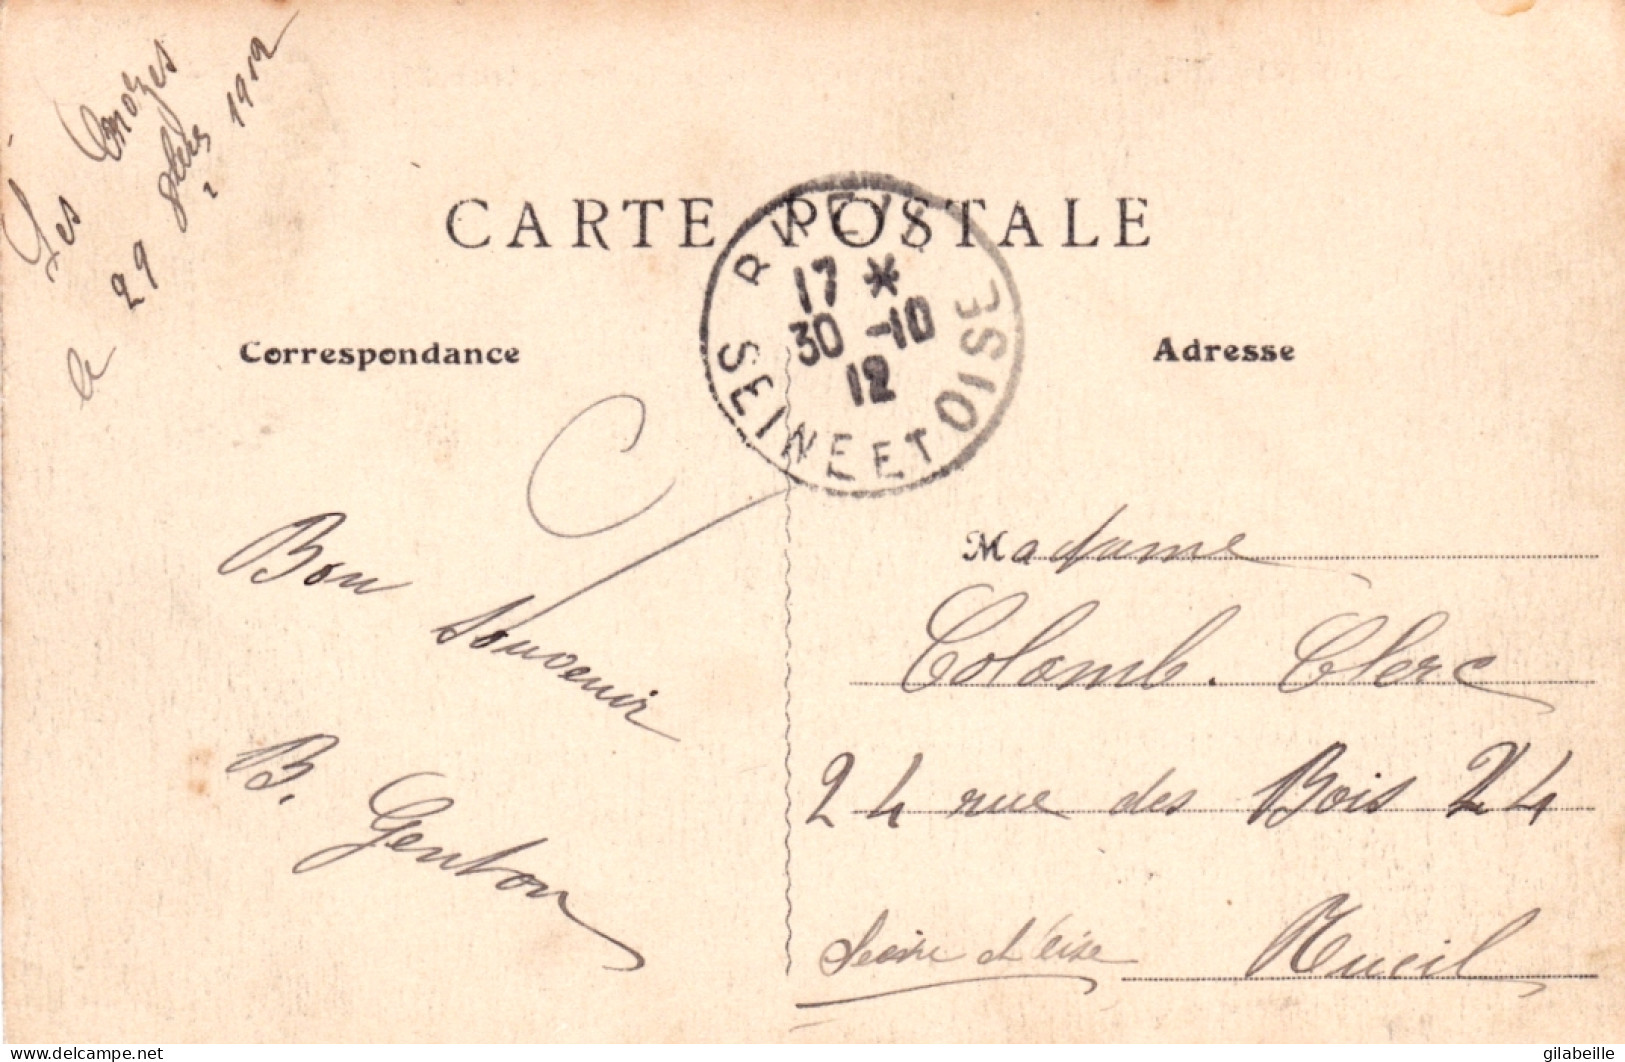 Les
a 29 1912
CARTE POSTALE
RUEIL
17 *
30 -10
12
SEINE ET OISE
Correspondance
Adresse
Bon
Souvenir
B. Genton
Madame
Colomb. Clerc
24 rue des Bois 24
Rueil
Seine et Oise
delcampe.net
gilabeille